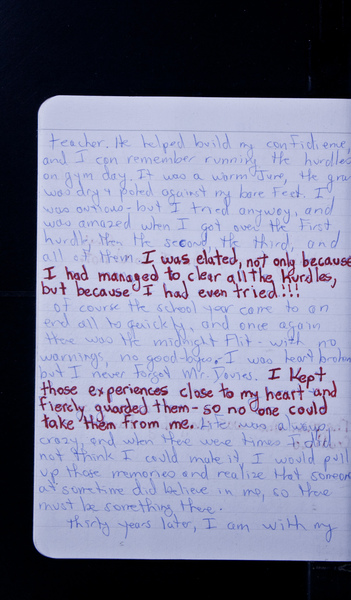 teacher. He helped build my confidience,
and I can remember running the hurdles
on gym day. It was a warm June, the gra
was dry & poked against my bare feet. I
was cutious - but I tried anyway, and
was amazed when I got over the first
hurdle, then the second, the third, and
all of them. I was elated, not only because
I had managed to clear all the Hurdles,
but because I had even tried!!!
of course the school year came to an
end all to quickly, and once again
there was the midnight flit - with no
warnings, no good-byes. I was heart broken
but I never forgot Mr. Davies. I Kept
those experiences close to my heart - and
fiercly guarded them - so no one could
take them from me. Life was always
crazy, and when there were times I did
not think I could make it, I would pull
up those memories and realize that someone
at sometime did believe in me, so there
must be something there.
thirty years later, I am with my